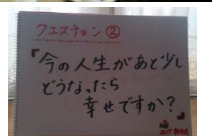 クエスチョン②
『今の人生があと少し
どうなったら
幸せですか?』